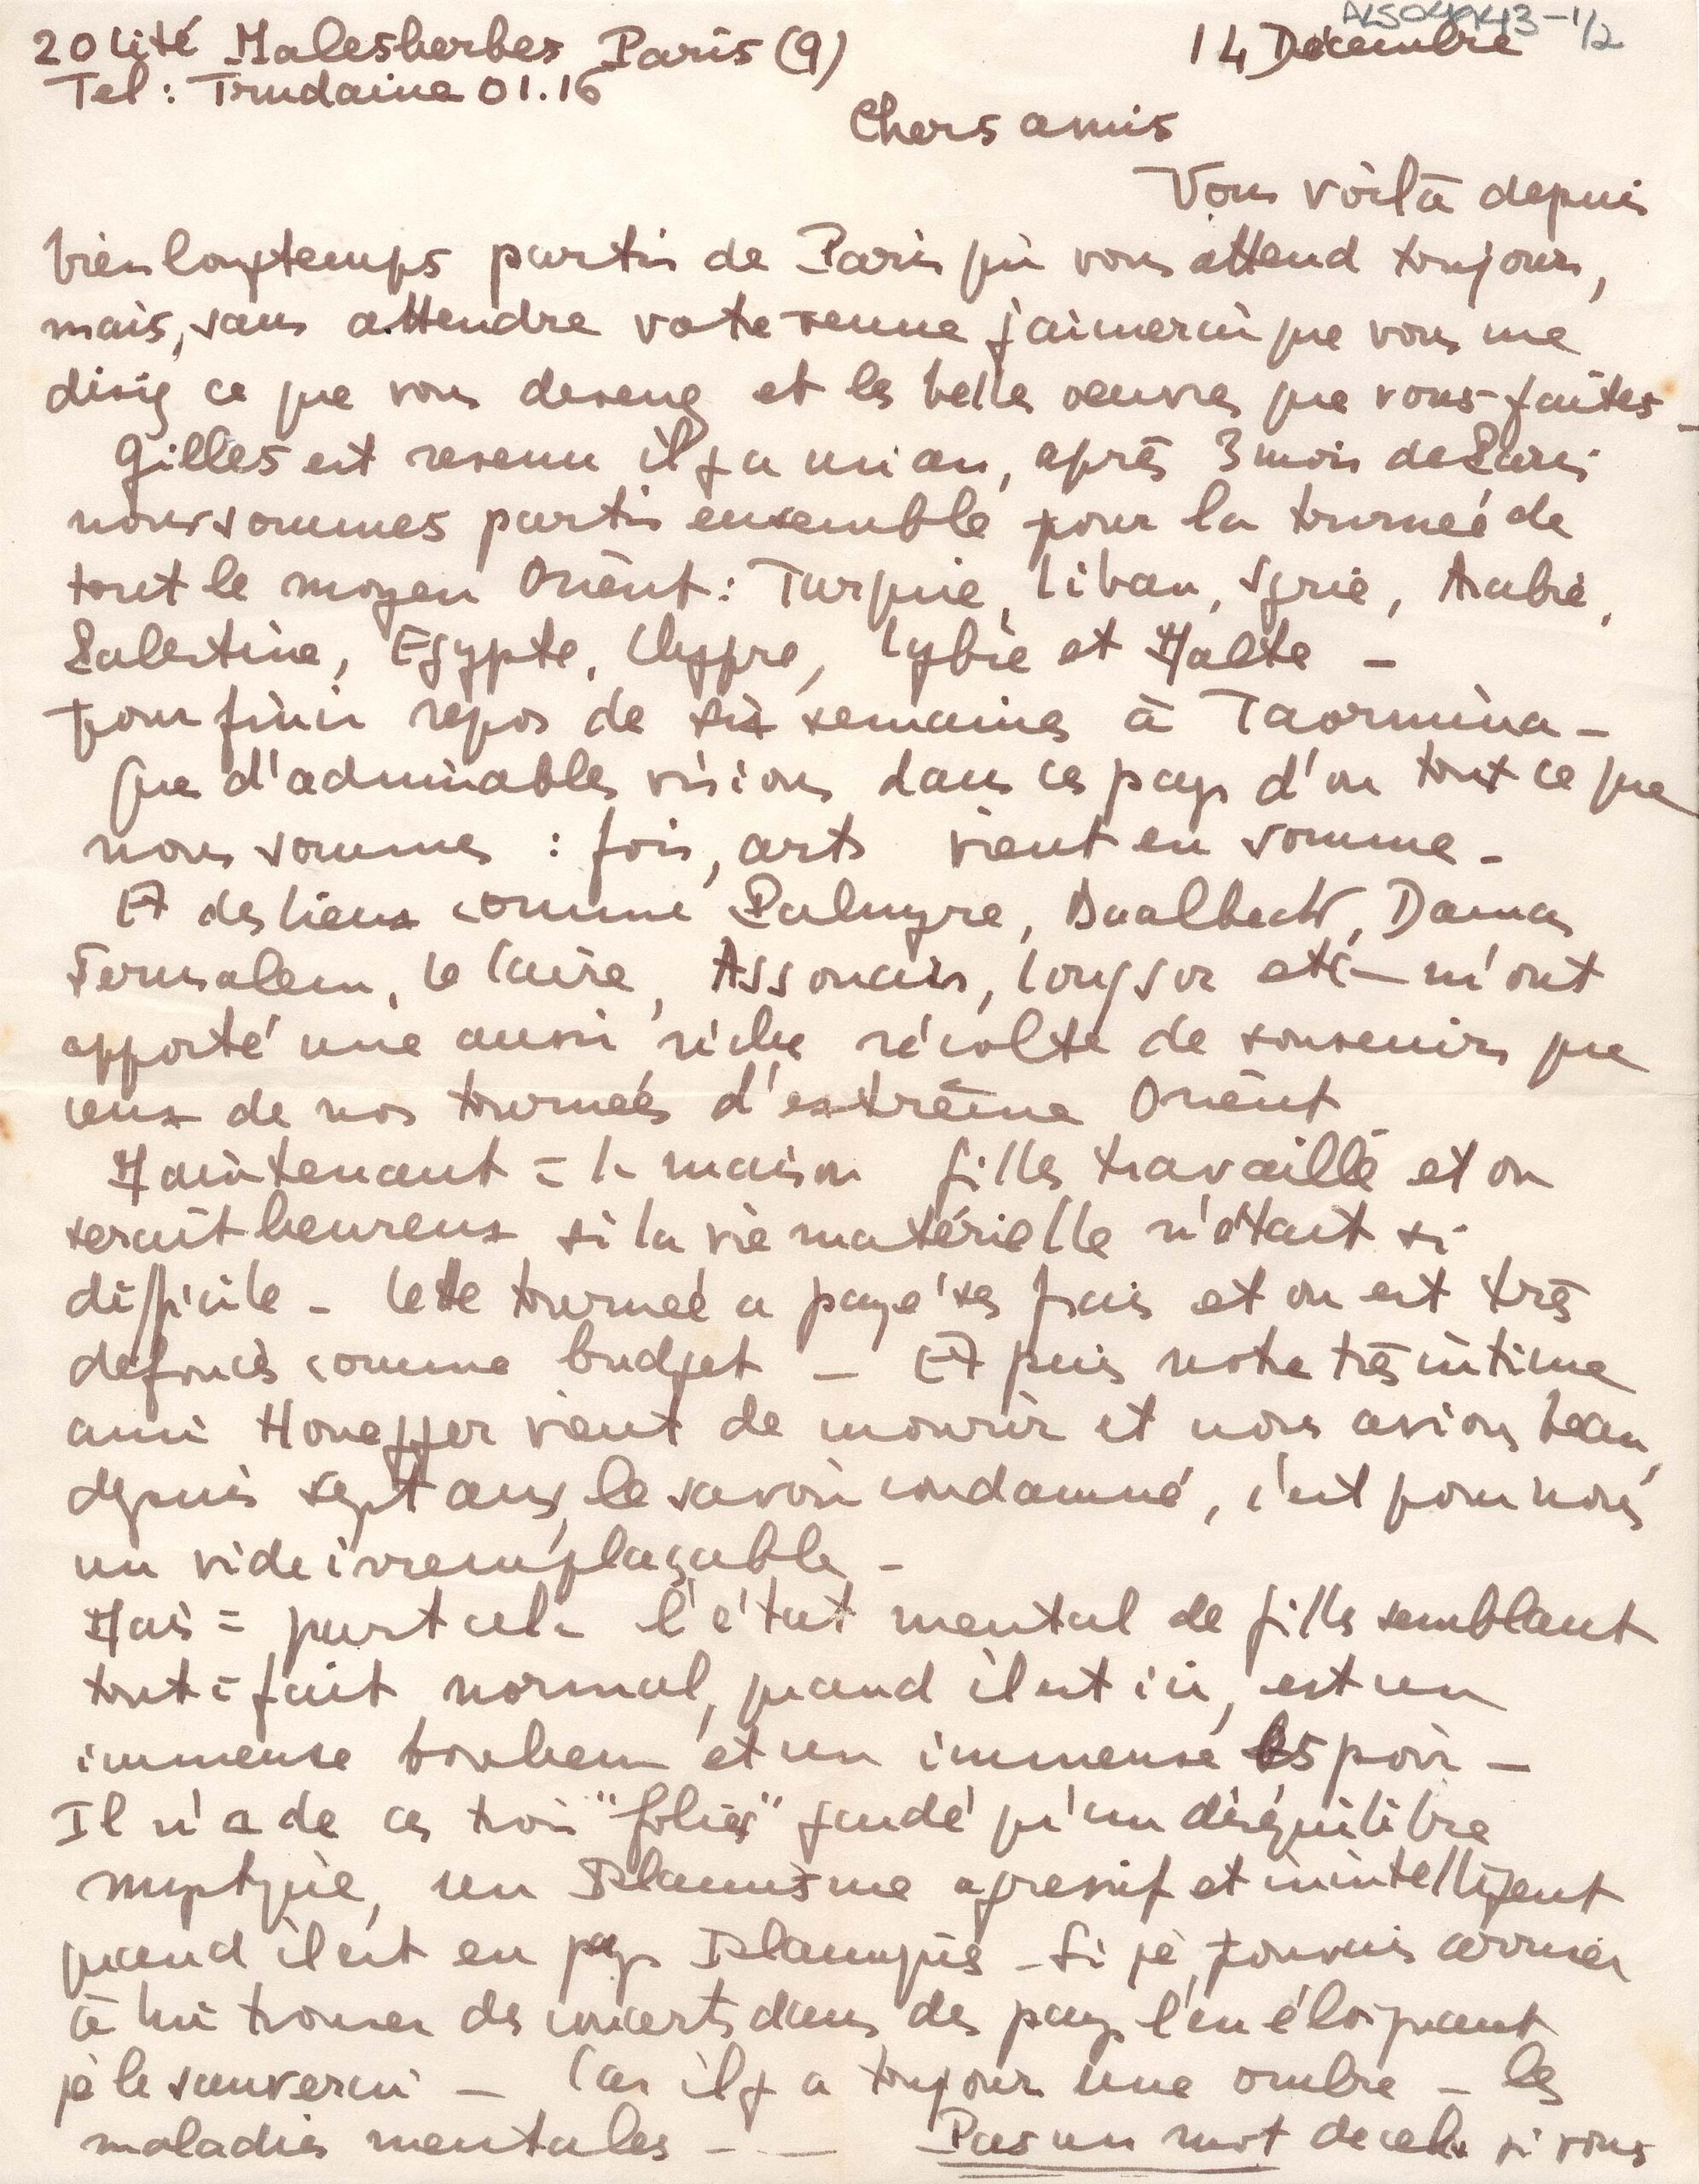 ALS04AX43-1/2
20 Cité Malesherbes Paris (9) 14 Décembre
Tel : Trudaine 01.16
Chers amis
Vous voilà depuis
bien longtemps partis de Paris qui vous attend toujours,
mais, sans attendre votre venue j'aimerai que vous me
disiez ce que vous devenez et les belles oeuvres que vous faites -
Gilles est revenu il y a un an, après 3 mois de Paris
nous sommes partis ensemble pour la tourneé de
tout le moyen Orient : Turquie, Liban, Syrie, Arabie,
Palestine, Egypte, Chypre, Lybie et Malte -
pour finir repos de six semaines à Taormina -
Que d'admirables visions dans ces pays d'ou tout ce que
nous sommes : fois, arts vient en somme -
Et des lieux comme Palmyre, Baalbeck, Damas
Jerusalem, le Caire, Assouan, Louqsor etc - m'ont
apporté une aussi riche récolte de souvenirs que
ceux de nos tourneés d'extrême Orient
Maintenant à la maison Gilles travaille et on
serait heureux si la vie matérielle n'était si
difficile - Cette tourneé a payé ses frais et on est très
défoncés comme budget - Et puis notre très intime
ami Honegger vient de mourir et nous avions beau,
depuis sept ans, le savoir condamné, c'est pour nous
un vide irremplaçable -
Mais à part cela l'état mental de Gilles semblant
tout à fait normal, quand il est ici, est un
immense bonheur et un immense Espoir -
Il n'a de ces trois "folies" gardé qu'un déséquilibre
mystique, un Islamisme agressif et inintelligent
quand il est en pays Islamiques - Si je pouvais arriver
à lui trouver des concerts dans des pays l'en éloignant
je le sauverai - Car il y a toujours une ombre - les
maladies mentales - - Pas un mot de cela si vous